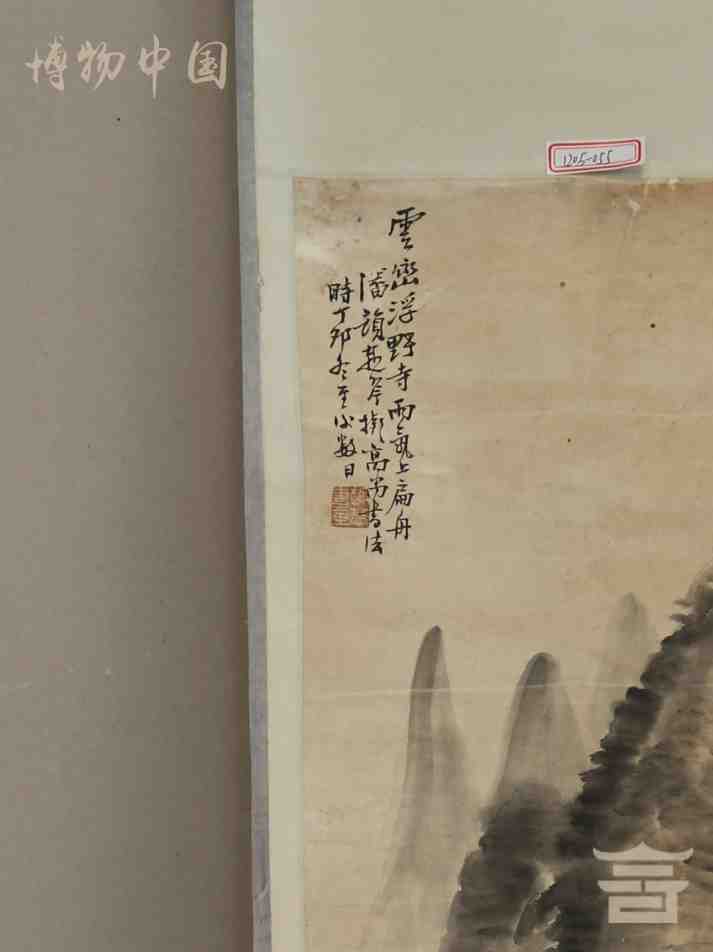 博物中国
1205-055
雲巒浮野寺雨氣上扁舟
潘頫趙岸擬高尚書法
時丁卯冬至後數日